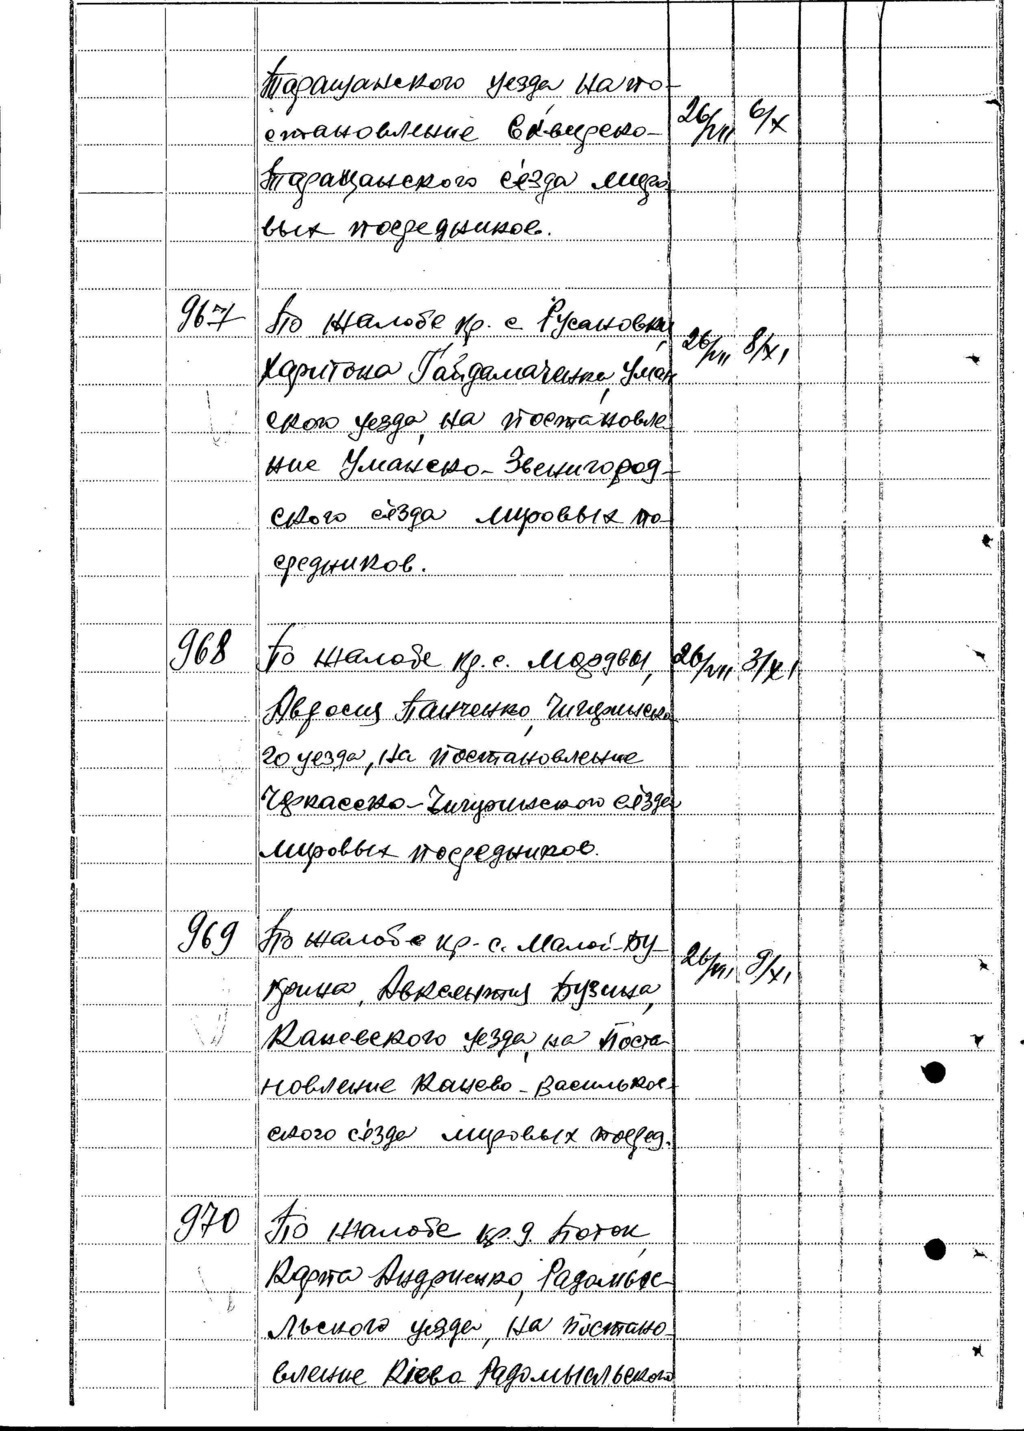 Таращанского уезда, на по-
становление Сквирско- 26/VII 6/X
Таращанского с'езда миро
вых посредников.
967 По жалобе кр. с. Русановки,
Харитона Гайдамаченко, Уман 26/VII 8/XI
ского уезда, на постановле
ние Уманско-Звенигород-
ского с'езда мировых по-
средников.
968 По жалобе кр. с. Мордвы, 26/VII 3/XI
Авросия Панченко, Чигиринско
го уезда, на постановление
Черкасско-Чигиринского с'езда
мировых посредников.
969 По жалобе кр. с. Малой-Бу 26/VII 9/XI
крина, Авксентия Бузина,
Каневского уезда, на поста-
новление Канево-Васильков-
ского с'езда мировых посред.
970 По жалобе кр. д. Поток,
Карпа Андриенко, Радомыс-
льского уезда, на постано-
вление Киево Радомысльского